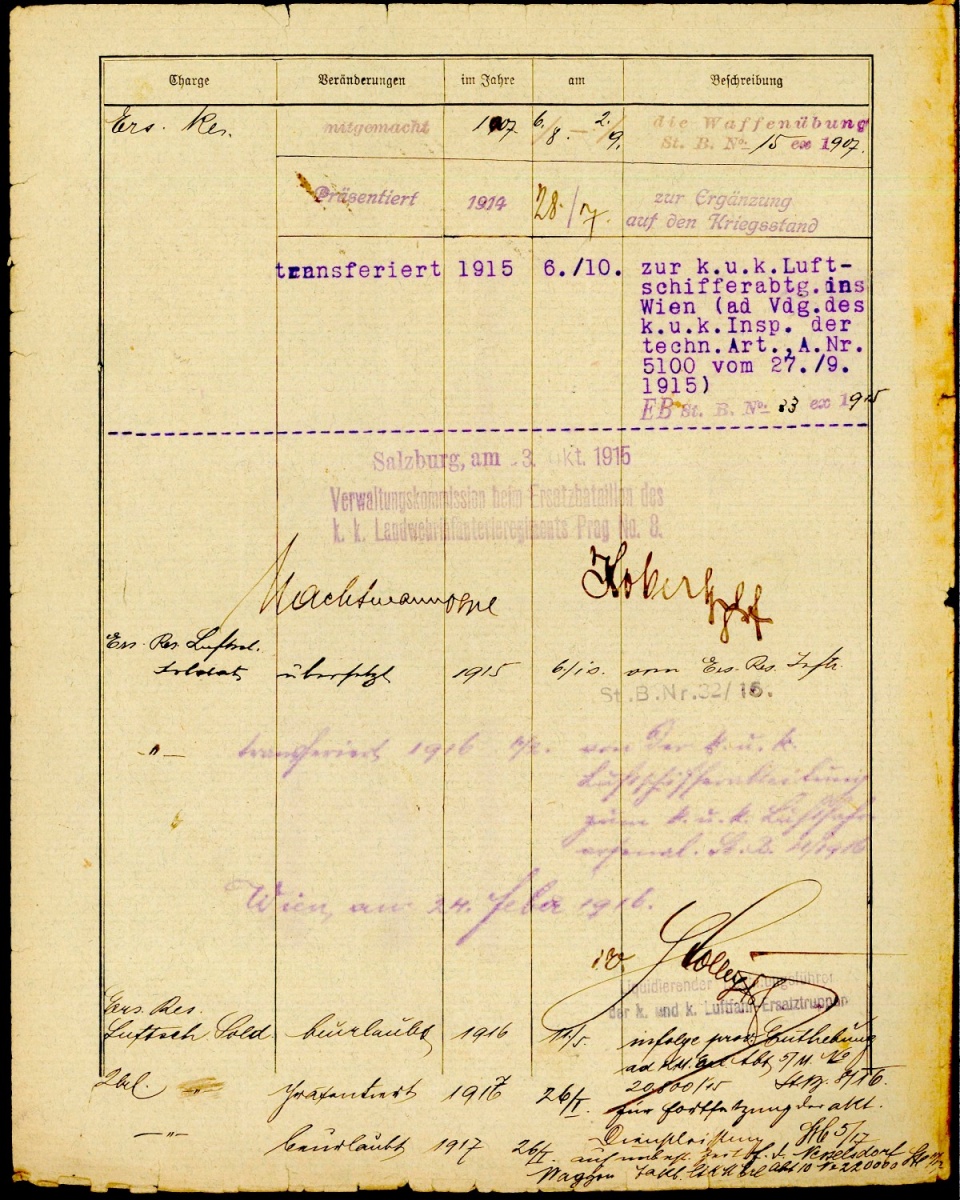 Charge Veränderungen im Jahre am Beschreibung
Ers. Res. mitgemacht 1907. 6./8. – 2./9. die Waffenübung
St. B. No. 15 ex 1907.
Präsentiert 1914 28./7. zur Ergänzung
auf den Kriegsstand
transferiert 1915 6./10. zur k.u.k.Luft-
schifferabtg.ins
Wien (ad Vdg.des
k.u.k.Insp. der
techn.Art.,A.Nr.
5100 vom 27./9.
1915)
EB St. B. No. 33 ex 1915
Salzburg, am 3. Okt. 1915
Verwaltungskommission beim Ersatzbataillon des
k. k. Landwehrinfanterieregiments Prag No. 8.
Ers. Res. Luftsch.
Soldat übersetzt 1915 6./10 vom Ers. Res. Inftr.
St.B.Nr.32/15.
–„– transferiert 1916 von der k. u. k.
Luftschifferabteilung
zum k. u. k. Luftfahr
arsenal. St. B.
Wien, am 24. Feber 1916.
Liquidierender Rechnungsführer
der k. und k. Luftfahr-Ersatztruppen
Ers. Res.
Luftsch. Sold. beurlaubt 1916 11./5. infolge prov. Enthebung
ad KM. Erl. Abt. 5/M No
20.000/15 St.B. 8/16.
–„– Präsentiert 1917 26/I. für Fortsetzung der akt.
Dienstleistung StB 5/17
–„– beurlaubt 1917 26/I. auf unbest. Zeit f. d. Nesselsdorf
Waggon Fabl. Abt 10 No 220000